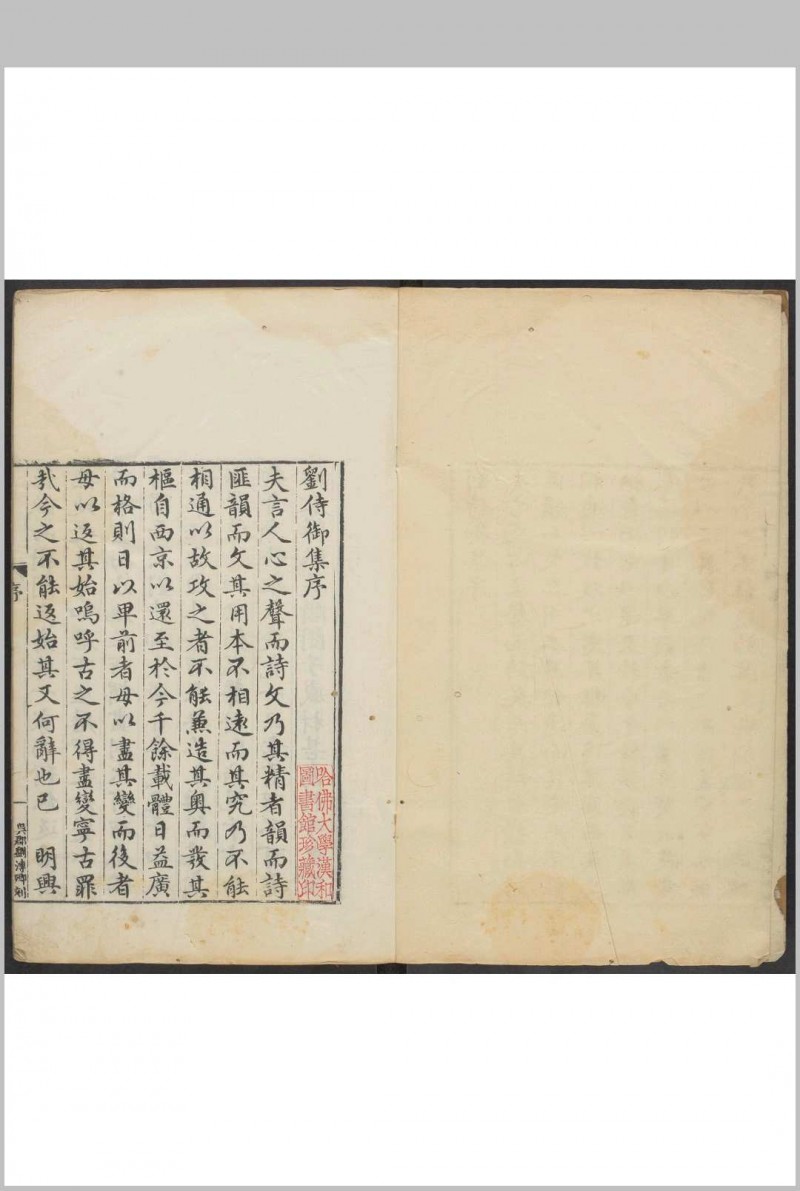 劉侍御集序
夫言人心之聲而詩文乃其精者韻而詩
匪韻而文其用本不相遠而其究乃不能
相通以故攻之者不能兼造其奥而發其
樞自西京以還至於今千餘載體日益廣
而格則日以卑前者毋以盡其變而後者
毋以返其始嗚呼古之不得盡變寧古罪
哉今之不能返始其又何辭也已　明興
序
吳郡劉溥卿刻
哈佛大學漢和
圖書館珍藏印